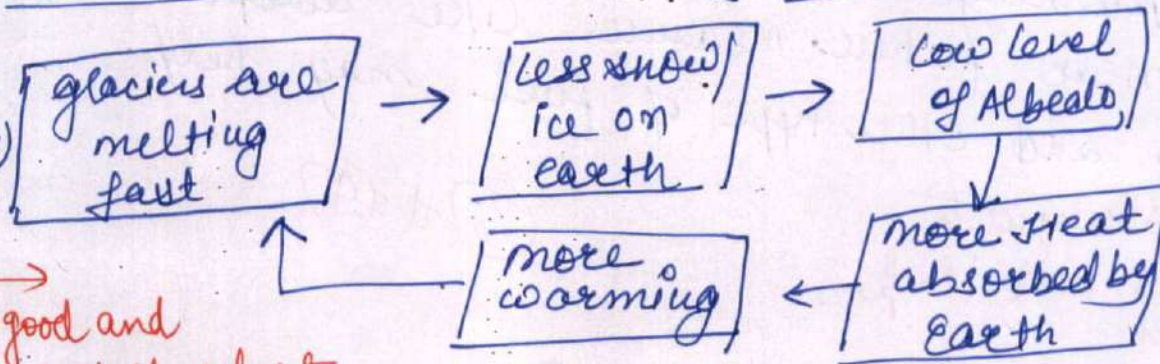 glaciers are
melting
fast
less snow/
ice on
earth
low level
of Albedo,
more Heat
absorbed by
Earth
more
warming
good and